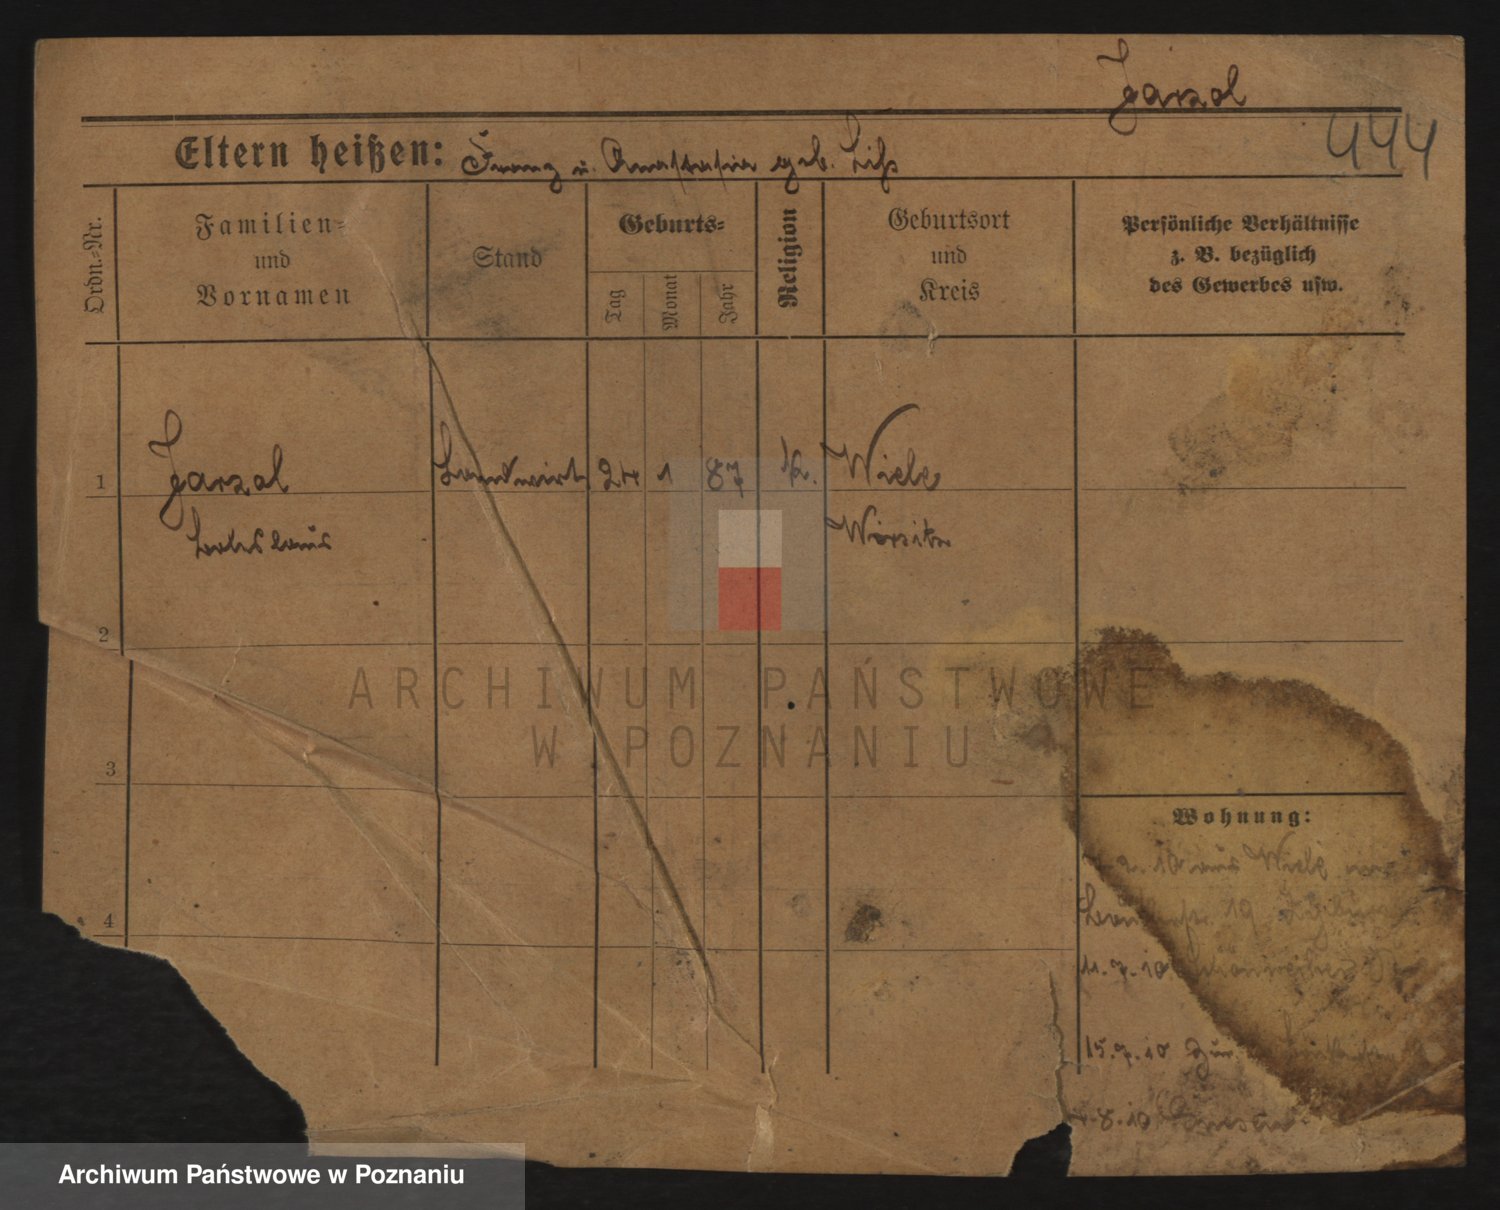 Jarzol
444
Eltern heißen: Franz u. Anastasia geb. Liß
Ordn.=Nr.
Familien=
und
Vornamen
Stand
Geburts=
Tag
Monat
Jahr
Religion
Geburtsort
und
Kreis
Persönliche Verhältnisse
z. B. bezüglich
des Gewerbes usw.
1
Jarzol Landwirt 24 1 87 k. Wiele
Wirsitz
2
ARCHIWUM PAŃSTWOWE
W POZNANIU
3
Wohnung:
2. 10 aus Wiele
19
4
11.7.10
15.7.10
8.10 Gnesen
Archiwum Państwowe w Poznaniu